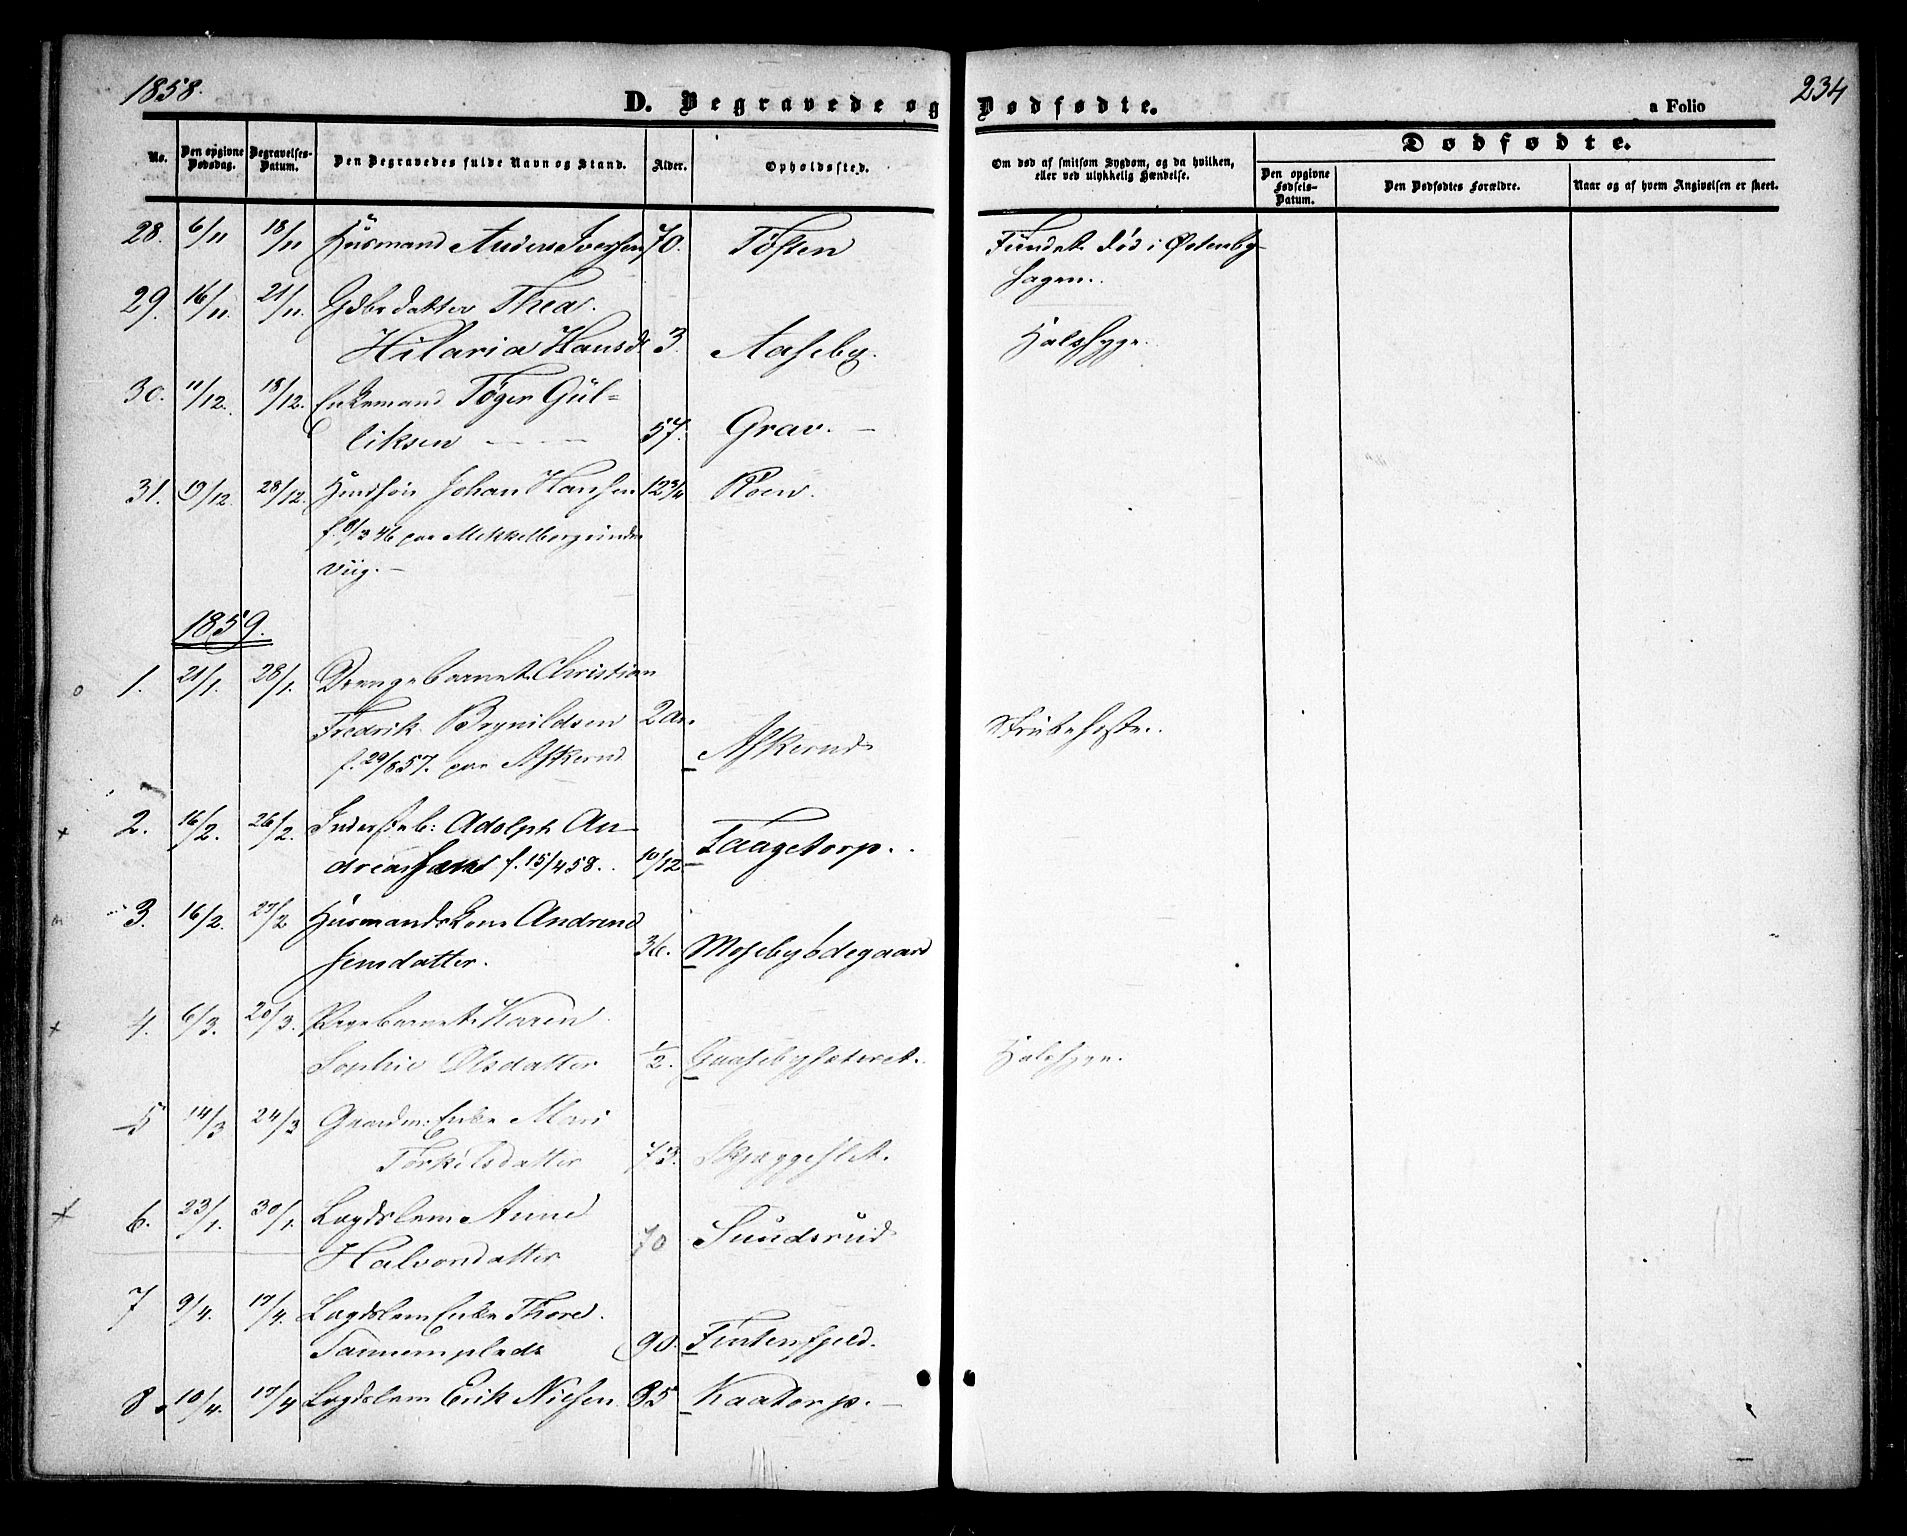 1858.
D. Begravede og Dødfødte.
a Folio
234
No.
Den opgivne Dødsdag.
Begravelses-Datum.
Den Begravedes fulde Navn og Stand.
Alder.
Opholdssted.
Om død af smitsom Sygdom, og da hvilken,
eller ved ulykkelig Hændelse.
Dødfødte.
Den opgivne Fødsels-Datum.
Den Dødfødtes Forældre.
Naar og af hvem Angivelsen er skeet.
28. 6/11 18/11 Huusmand Anders Iversen 70. Toften Fundet død i Østenby-
hagen.
29. 16/11. 21/11. Gdbr datter Thea
Hilaria Hansd. 3. Aaseby. Halssyge.
30. 11/12. 18/12. Enkemand Tøger Gul-
liksen 57. Grav. -
31. 19/12. 28/12. Johan Hansen 12 3/4 Røen.
f. 9/3 46 paa
viig. -
1859.
1. 21/1. 28/1. Drengebarnet Christian
Fredrik Brynildsen 2 Aar
f. 29/8 57. paa Askerud Askerud Strubehoste.
2. 16/2. 26/2. Adolph An-
dreassen f. 15/4 58. 10/12. Taagetorp.
3. 16/2. 27/2 Huusmandskone Andrine
Jensdatter. 36. Mosebyødegaard
4. 6/3. 20/3. Pigebarnet Karen
Sophie Olsdatter 1/2. Gaasebysæteret. Halssyge.
5 14/3 24/3 Gaardm: Enke Mari
Torkilsdatter 73. Skjæggeslet.
6. 23/1. 30/1. Lægdslem Anne
Halvorsdatter 70 Sundsrud
7 9/4. 17/4. Lægdslem Enke Thore
90. Fintenfjeld.
8. 10/4. 17/4 Lægdslem Erik Nilsen 85 Kaatorp. -